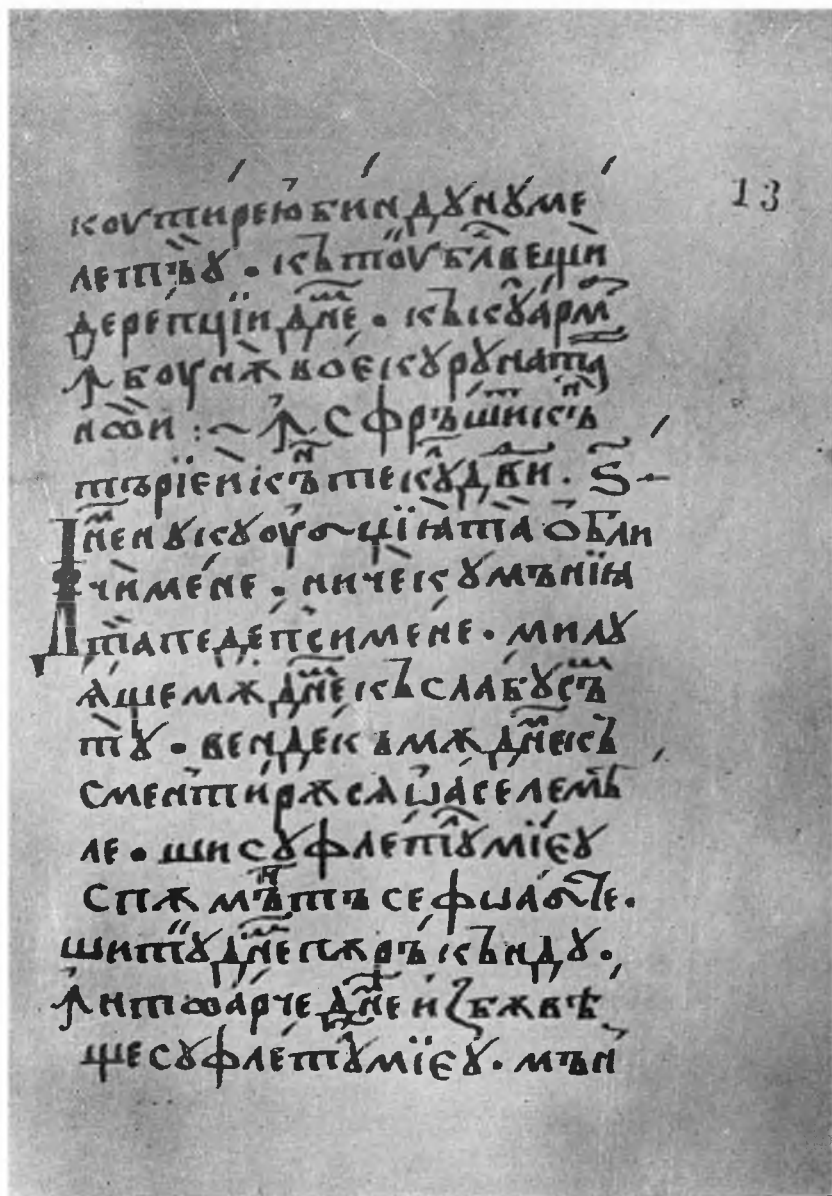 коутирею биндꙋнꙋме
летъꙋ · къ тоу бл҃вещи
дерепции дм҃не · къ кꙋ арм
ꙟ боунѫ вое кꙋрꙋната
нои :~ ꙟ сфръшикъ
търїе никъте кꙋ дв҃и · ѕ
13
дм҃не нꙋ кꙋ оуоциїꙗ та обли
чи мене · ниче кꙋ мънїꙗ
та педепси мене · милꙋ
ꙗще мѫ дм҃не къ слаб съ
тꙋ · вендекъ мѫ дм҃не къ
сментирѫсѧ ѡаселе мѣ
ле · ши сꙋфлетꙋ мїеꙋ
спѫмътъ се фѡасте ·
ши тꙋ дм҃не пѫръ къндꙋ ·
ꙟнтоарче дм҃не избѫвѣ
ще сꙋфлетꙋ мїеꙋ · мън